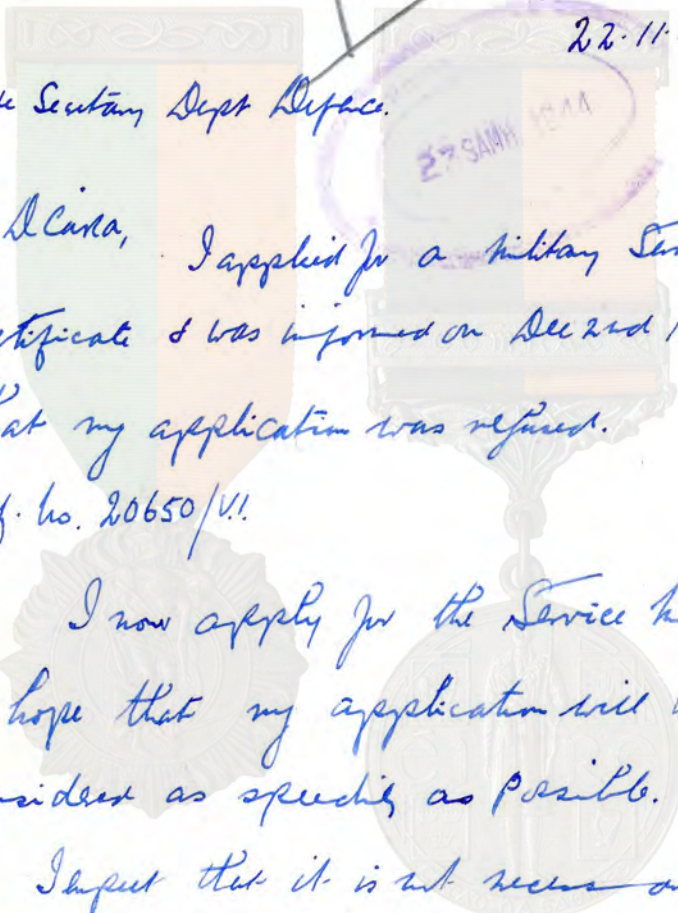 22.11.
27 SAMH 1944
Secretary Dept Defence.
A Cara,
I applied for a military
& was informed on Dec 2nd
my application was refused.
no. 20650/VI.
I now apply for the Service
hope that my application will
as speedily as possible.
I expect that it is not